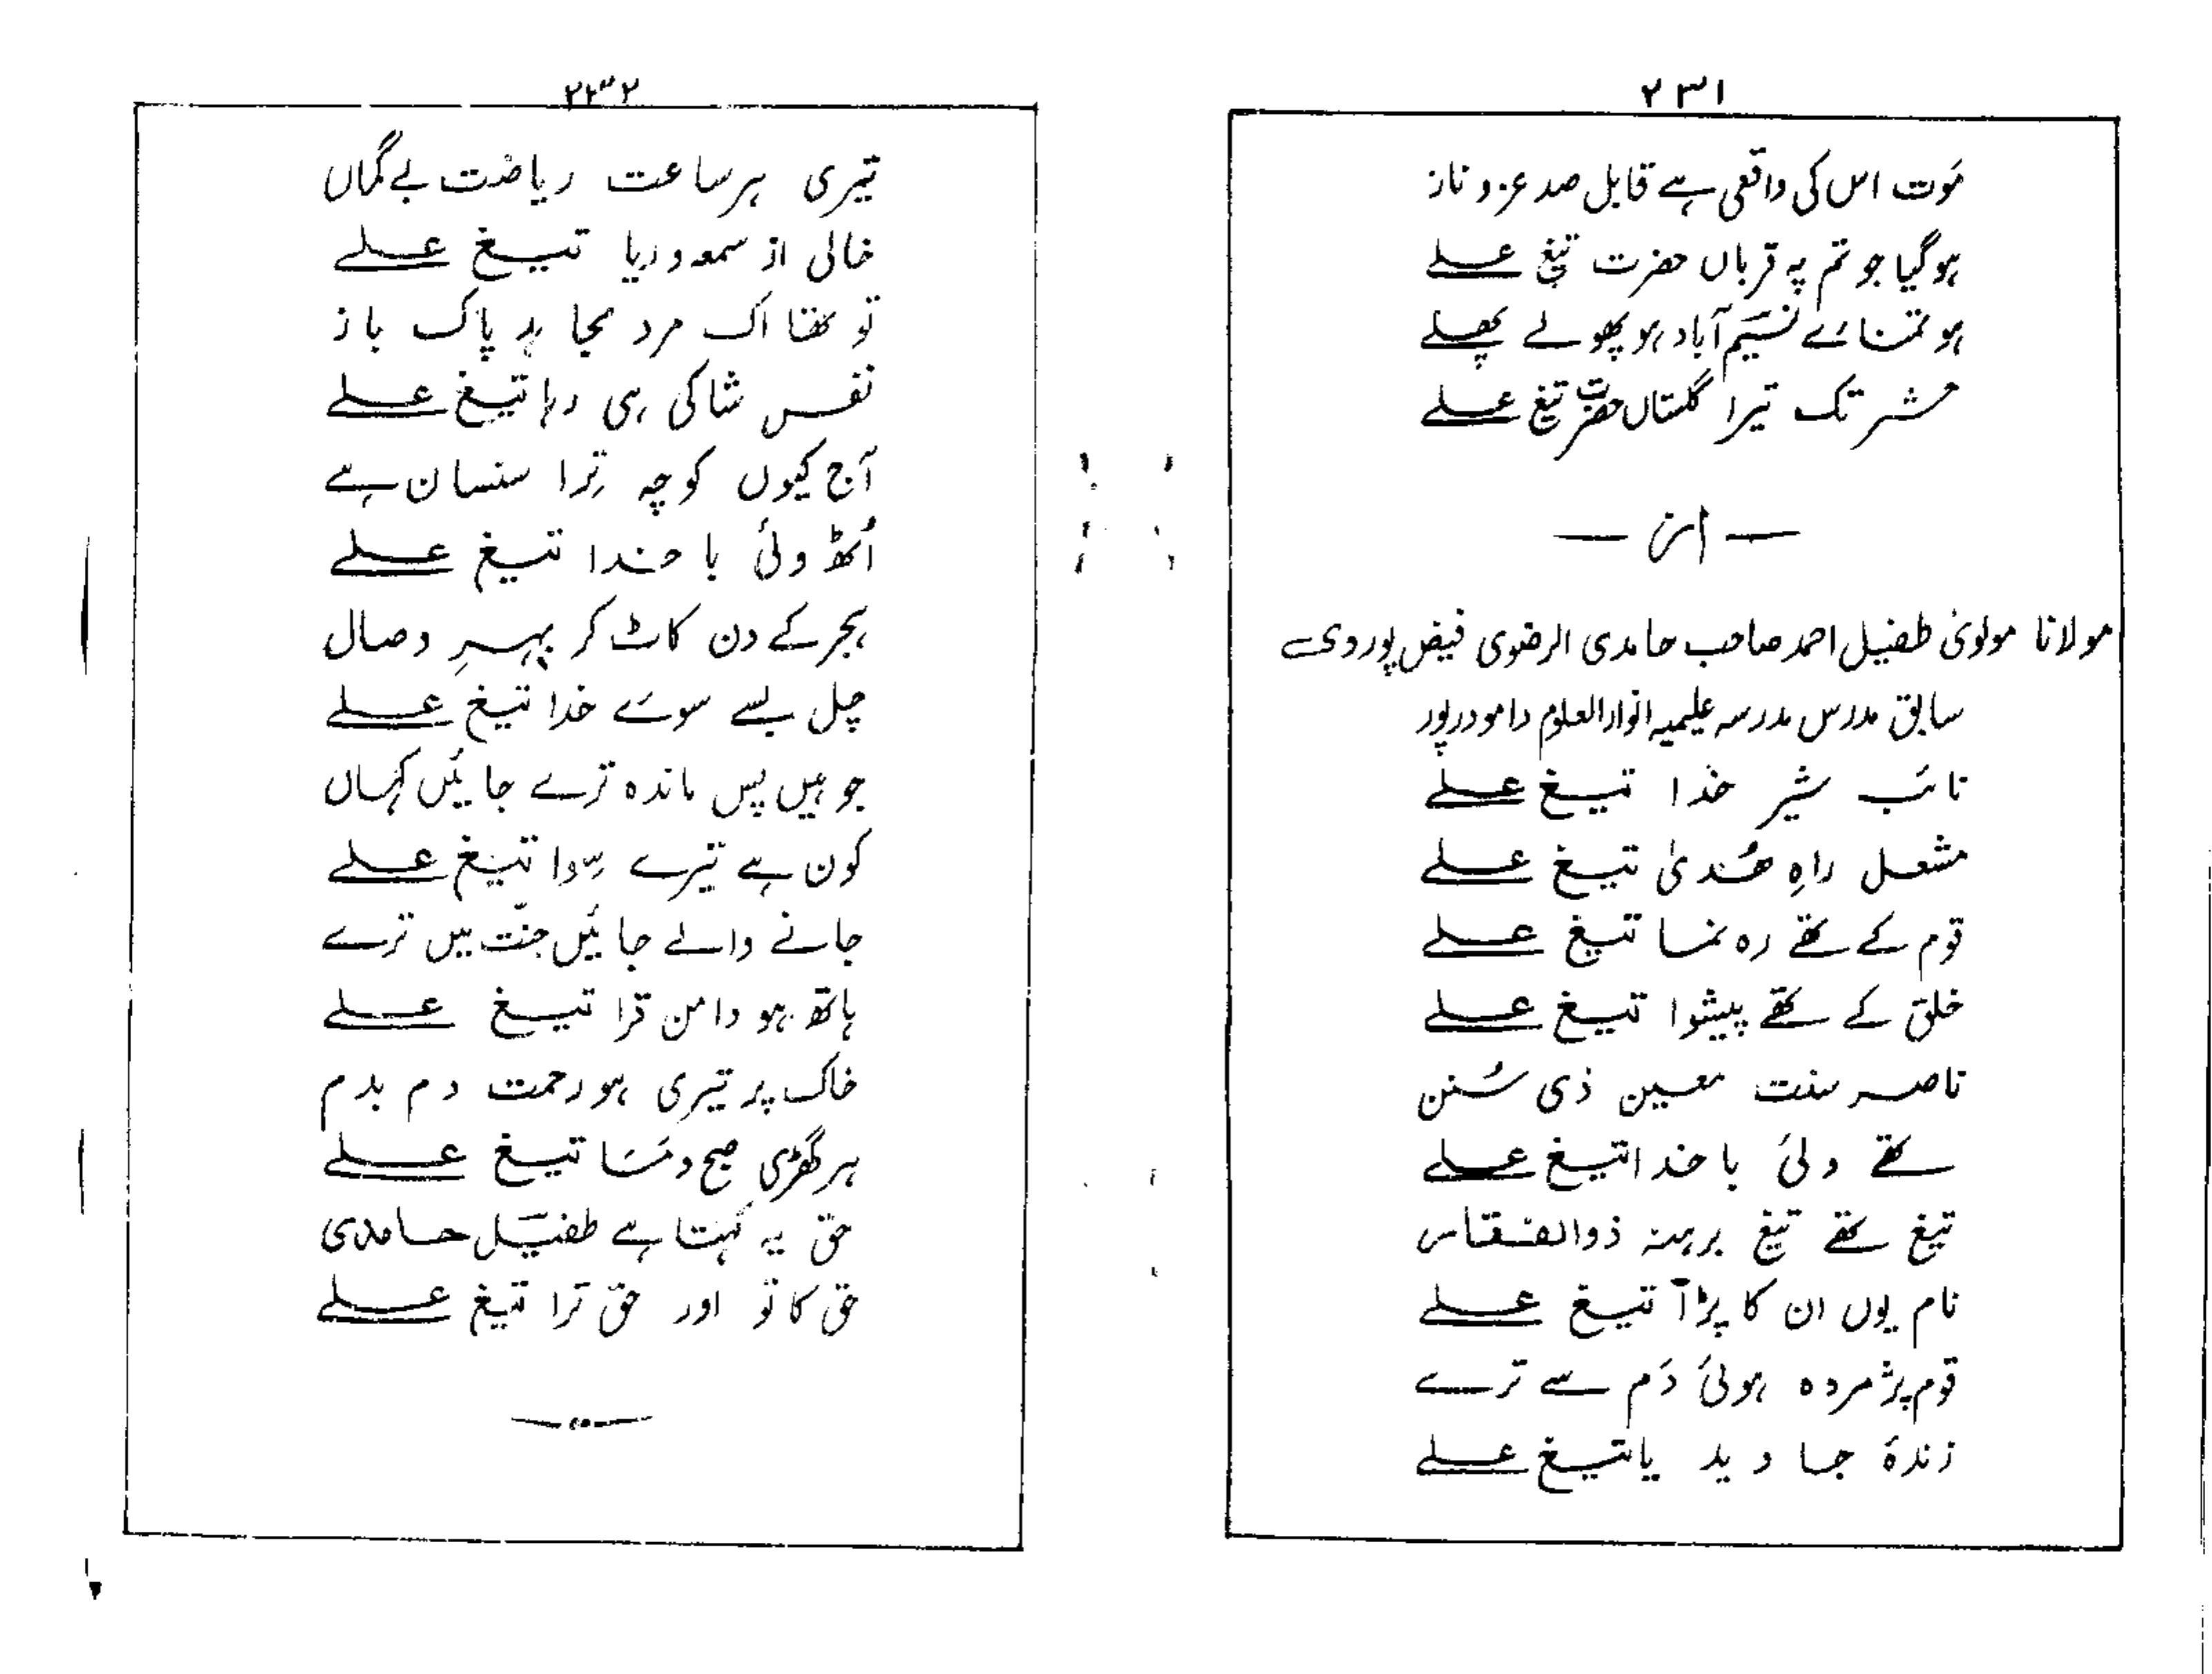 ۲۳۱
مَوت اس کی واقعی ہے قابل صد عز و ناز
ہو گیا جو تم پہ قرباں حضرت تیغ علے
ہو تمنائے نسیم آباد ہو پھولے پھلے
حشر تک تیرا گلستاں حضرت تیغ علے
— از —
مولانا مولوی طفیل احمد صاحب حامدی الرضوی فیض پوروی
سابق مدرس مدرسہ علیمیہ انوار العلوم دامودرپور
نائب شیر خدا تیغ علے
مشعل راہِ ھُدیٰ تیغ علے
قوم کے تھے رہ نما تیغ علے
خلق کے تھے پیشوا تیغ علے
ناصر سنت معین ذی سُنن
تھے ولیٔ با خدا تیغ علے
تیغ تھے تیغ برہنہ ذوالفقار
نام یوں ان کا پڑا تیغ علے
قوم پژمردہ ہوئی دَم سے ترے
زندۂ جاوید یا تیغ علے
۲۳۲
تیری ہر ساعت ریاضت بے گماں
خالی از سمعہ و ریا تیغ علے
تو تھا اک مرد مجاہد پاک باز
نفس شاکی ہی رہا تیغ علے
آج کیوں کوچہ تِرا سنسان ہے
اُٹھ ولیٔ با خدا تیغ علے
ہجر کے دن کاٹ کر بہرِ وصال
چل بسے سوئے خدا تیغ علے
جو ہیں پس ماندہ ترے جائیں کہاں
کون ہے تیرے سِوا تیغ علے
جانے والے جائیں جنّت میں ترے
ہاتھ ہو دامن ترا تیغ علے
خاک پر تیری ہو رحمت دم بدم
ہر گھڑی صبح و مسَا تیغ علے
حق یہ کہتا ہے طفیل حامدی
حق کا تو اور حق ترا تیغ علے